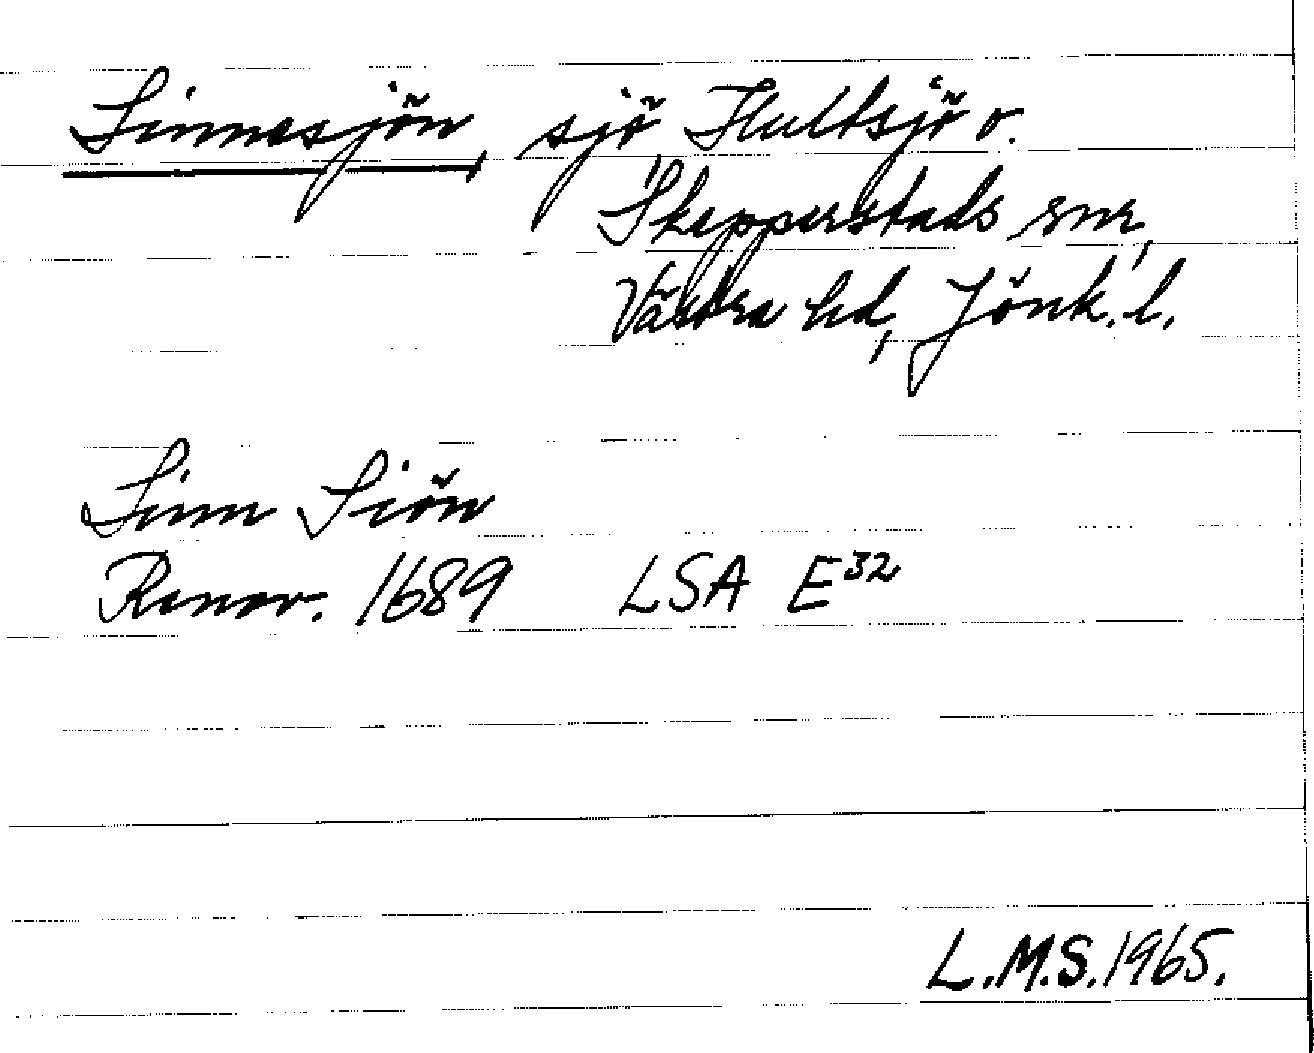 Linnesjön, sjö, Hultsjö o.
Skepperstads snr,
Västra hd, Jönk. l.
Linn Siön
Renov. 1689 LSA E32
L.M.S. 1965.